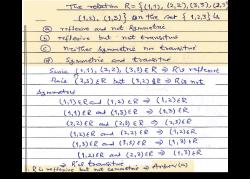 The relation R = {(1,1), (2,2), (3,3), (2,3)
(1,2), (1,3)} on the set {1,2,3} is
(a) reflexive and not symmetric
(b) reflexive but not transitive
(c) Neither symmetric nor transitive
(d) Symmetric and transitive
Since (1,1), (2,2), (3,3) ∈ R ⇒ R is reflexive
(2,3) ∈ R but (3,2) ∉ R ⇒ R is not
Symmetric
(1,1) ∈ R and (1,2) ∈ R ⇒ (1,2) ∈ R
(1,1) ∈ R and (1,3) ∈ R ⇒ (1,3) ∈ R
(2,2) ∈ R and (2,3) ∈ R ⇒ (2,3) ∈ R
(1,2) ∈ R and (2,2) ∈ R ⇒ (1,2) ∈ R
(1,3) ∈ R and (3,3) ∈ R ⇒ (1,3) ∈ R
(1,2) ∈ R and (2,3) ∈ R ⇒ (1,3) ∈ R
⇒ R is transitive
R is reflexive but not symmetric ⇒ Answer (a)